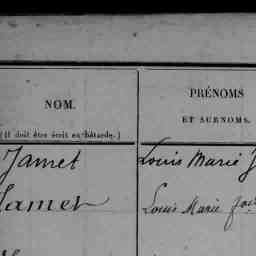 NOM.
(Il doit être écrit en bâtarde.)
PRÉNOMS
ET SURNOMS.
Jamet
Louis Marie J
Jamet
Louis Marie